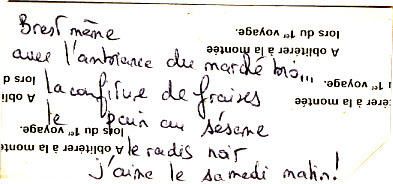 Brest même
avec l'ambiance du marché bio...
la confiture de fraises
le pain au sésame
le radis noir
j'aime le samedi matin!
A oblitérer à la montée
lors du 1er voyage.
érer à la montée
1er voyage.
A obli
lors d
A oblitérer à la mont
lors du 1er voyage.